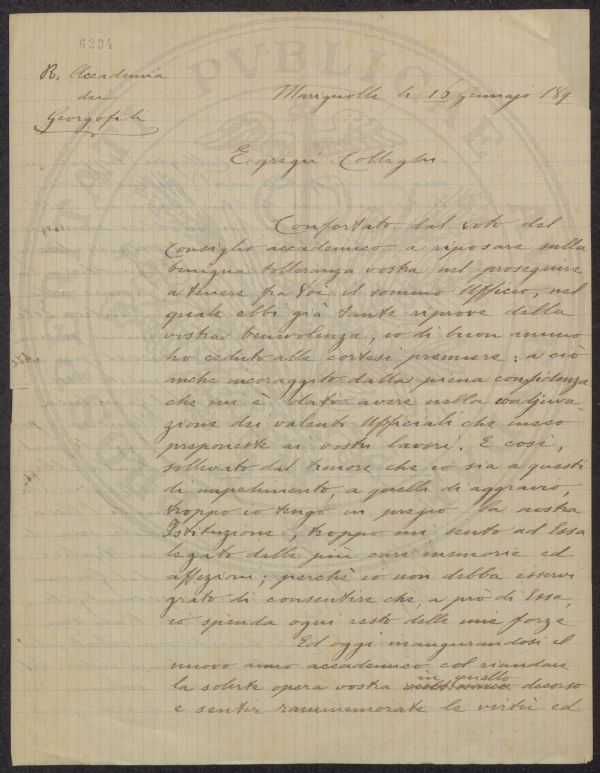 6294
R. Accademia
dei
Georgofili
Marignolle li 16 Gennajo 189
Egregi Colleghi
Confortato dal voto del
Consiglio accademico a riposare sulla
benigna tolleranza vostra nel proseguire
a tenere fra Voi il sommo Ufficio, nel
quale ebbi già tante riprove della
vostra benevolenza, io di buon animo
ho ceduto alle cortesi premure: a ciò
anche incoraggito dalla piena confidenza
che mi è dato avere nella coadjuva-
zione dei valenti Ufficiali che meco
preponeste ai vostri lavori. E così,
sollevato dal timore che io sia a questi
di impedimento, a quelli di aggravio,
troppo io tengo in pregio la nostra
Istituzione, troppo mi sento ad Essa
legato dalle più care memorie ed
affezioni; perchè io non debba esservi
grato di consentire che, a prò di Essa,
io spenda ogni resto delle mie forze
Ed oggi inaugurandosi il
nuovo anno accademico col riandare
la solerte opera vostra in quello decorso
e sentir rammemorate le virtù ed
PVBLICAE